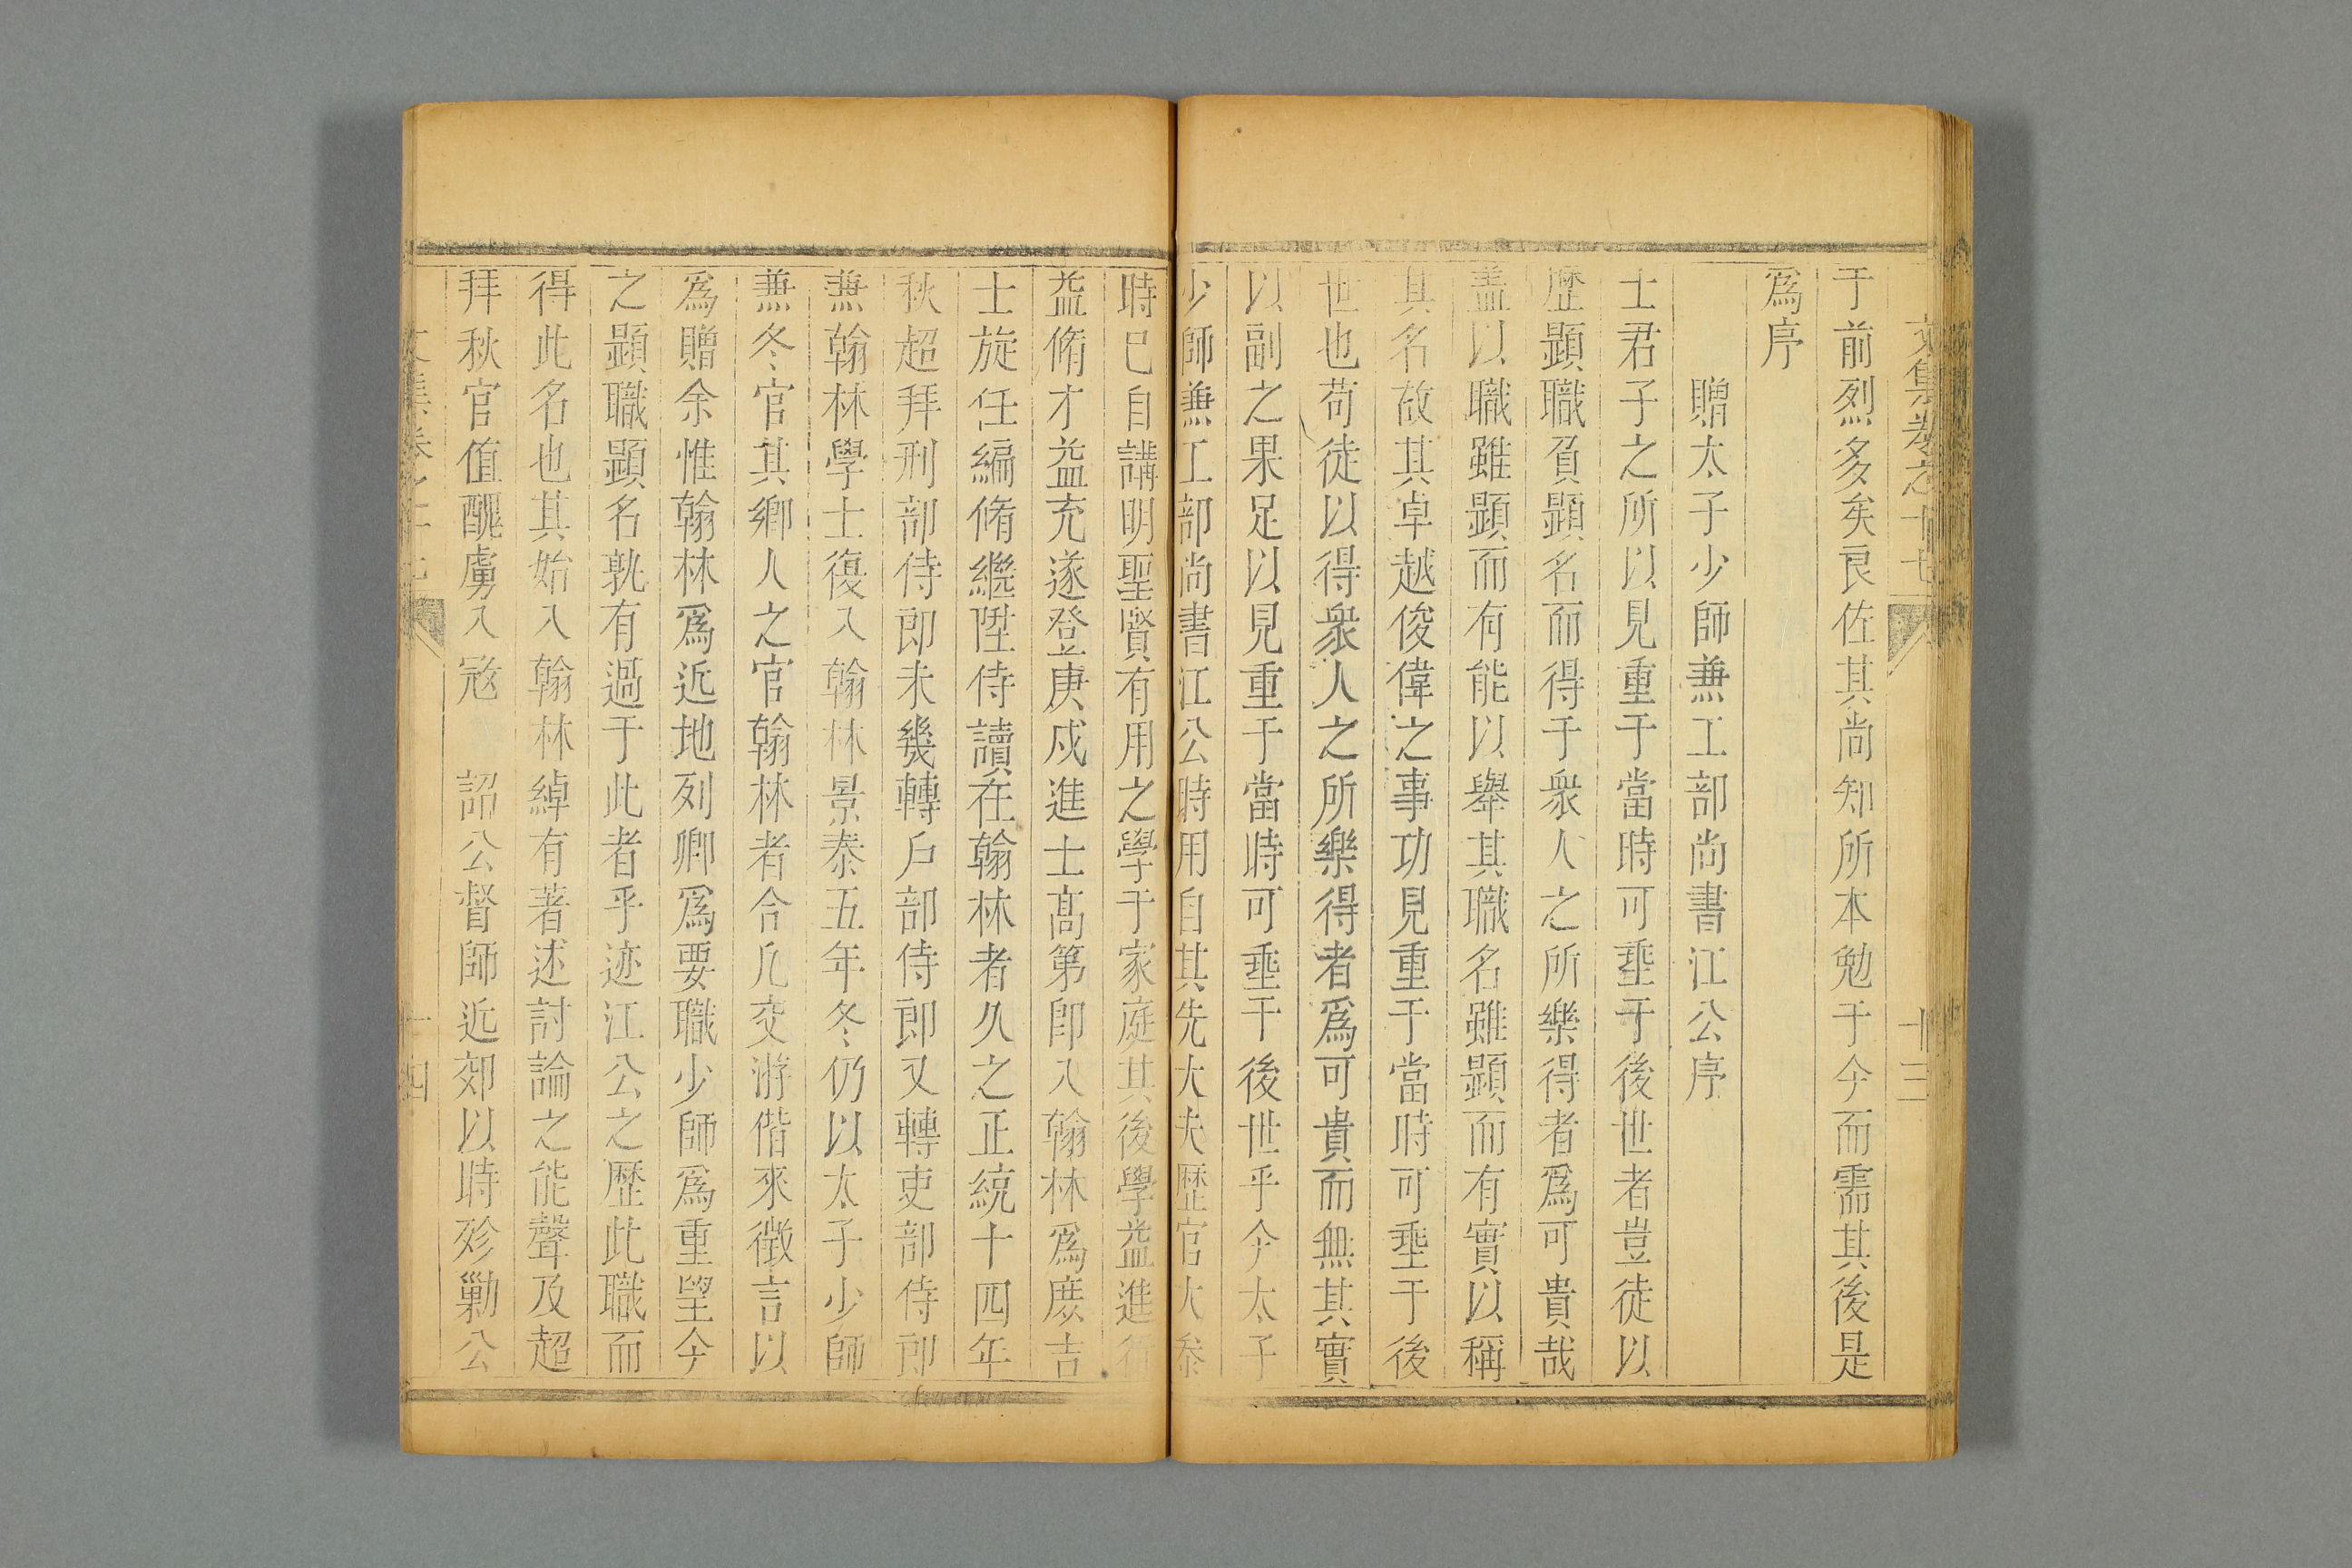 文集卷之十七 十三
于前烈多矣良佐其尚知所本勉于今而需其後是
爲序
贈太子少師兼工部尚書江公序
士君子之所以見重于當時可垂于後世者豈徒以
歷顯職負顯名而得于衆人之所樂得者爲可貴哉
蓋以職雖顯而有能以舉其職名雖顯而有實以稱
其名故其卓越俊偉之事功見重于當時可垂于後
世也苟徒以得衆人之所樂得者爲可貴而無其實
以副之果足以見重于當時可垂于後世乎今太子
少師兼工部尚書江公時用自其先大夫歷官大參
時已自講明聖賢有用之學于家庭其後學益進行
益脩才益充遂登庚戍進士高第即入翰林爲庶吉
士旋任編脩繼陞侍讀在翰林者久之正統十四年
秋超拜刑部侍郎未幾轉戶部侍郎又轉吏部侍郎
兼翰林學士復入翰林景泰五年冬仍以太子少師
兼冬官其鄉人之官翰林者合凡交游偕來徵言以
爲贈余惟翰林爲近地列卿爲要職少師爲重望今
之顯職顯名孰有過于此者乎迹江公之歷此職而
得此名也其始入翰林綽有著述討論之能聲及超
拜秋官值醜虜入寇 詔公督師近郊以時殄勦公
文集卷之十七 十四